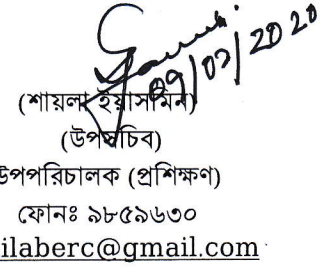 09/07/2020
(শায়লা ইয়াসমিন)
(উপসচিব)
উপপরিচালক (প্রশিক্ষণ)
ফোনঃ ৯৮৫৯৬৩০
ilaberc@gmail.com